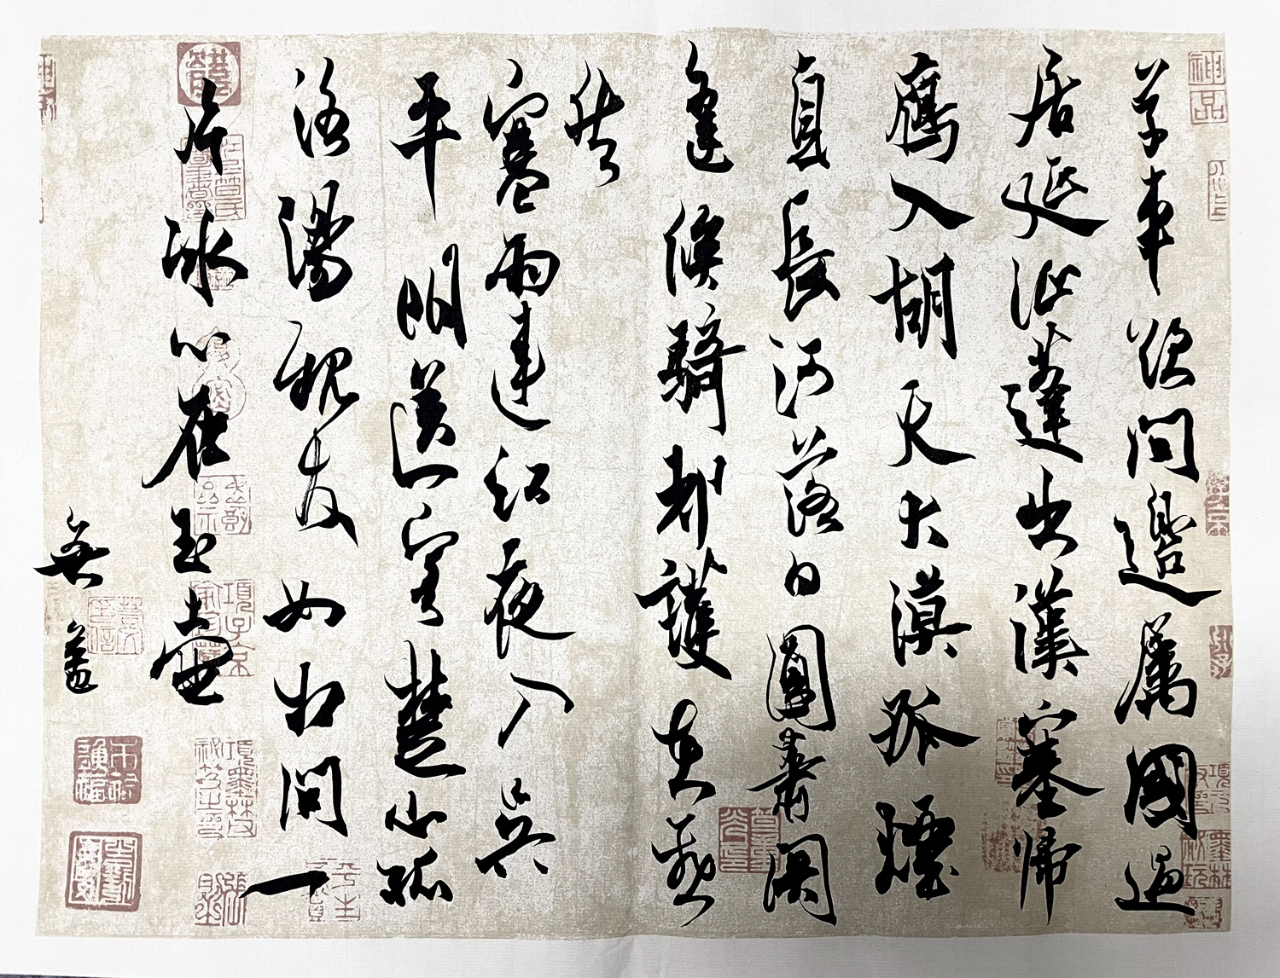 神品
單車欲問邊屬國過
居延征蓬出漢塞歸
鴈入胡天大漠孤煙
直長河落日圓蕭關
逢候騎都護在燕
然
寒雨連江夜入吳
平明送客楚山孤
洛陽親友如相問一
片冰心在玉壺